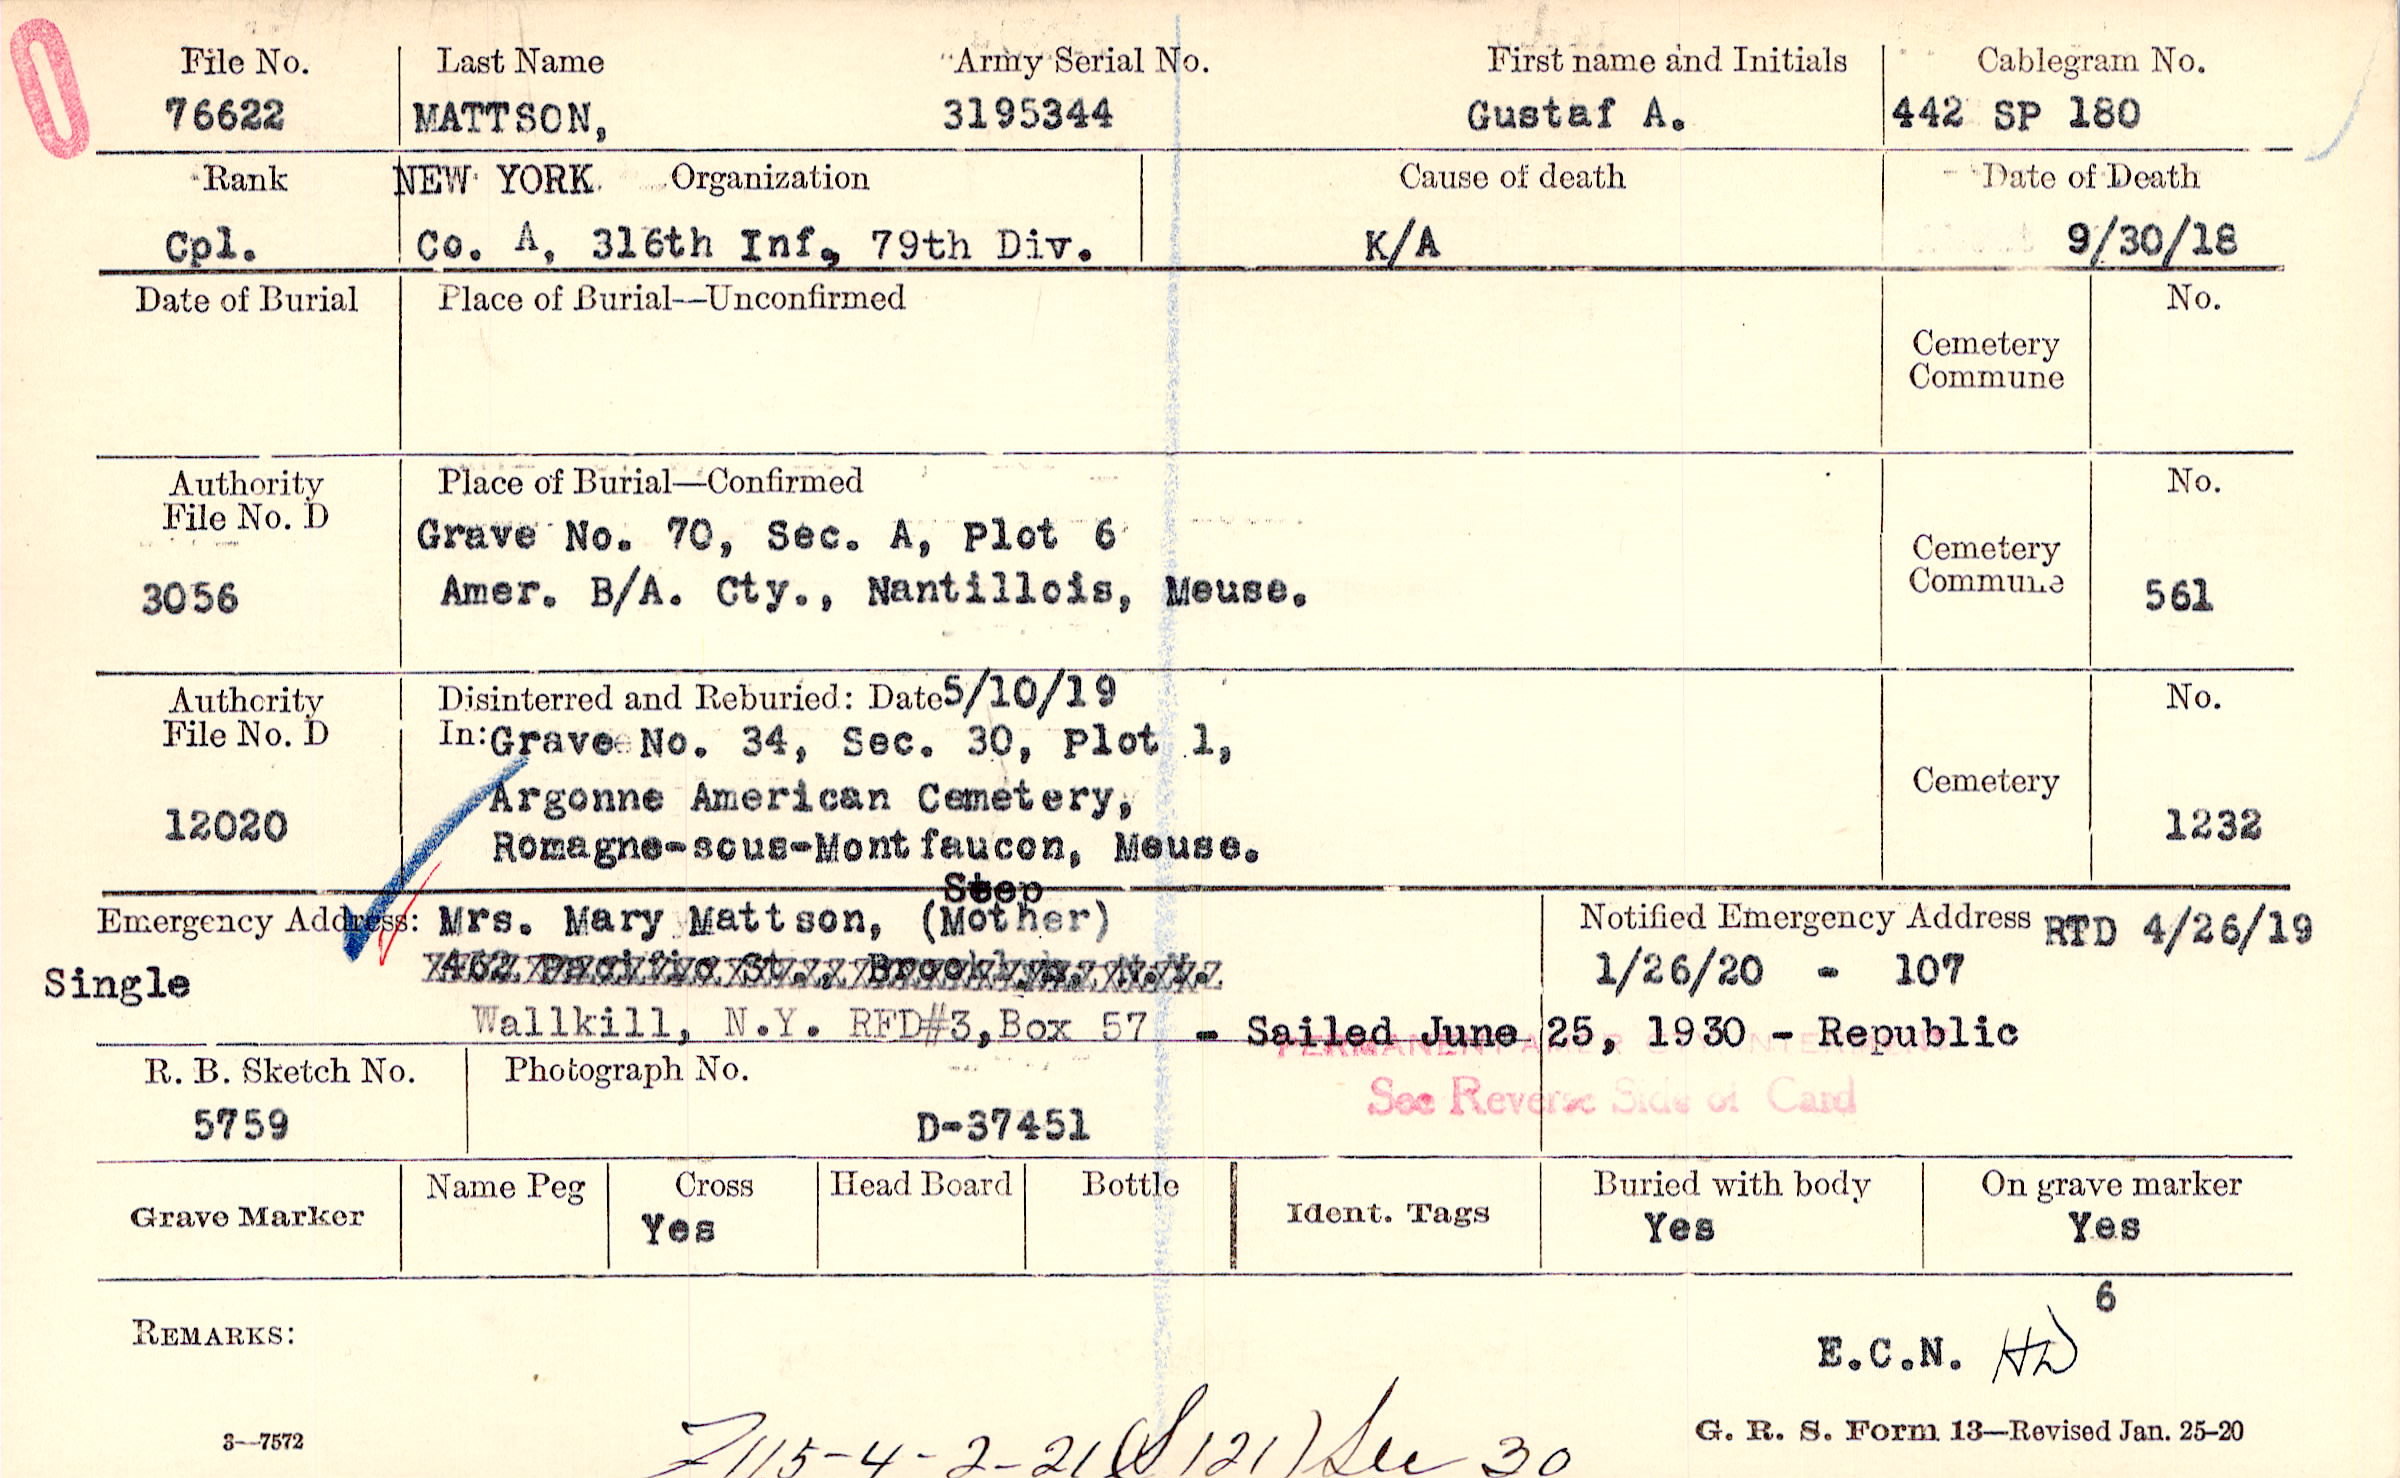 File No. Last Name Army Serial No. First name and Initials Cablegram No.
76622 MATTSON, 3195344 Gustaf A. 442 SP 180
Rank NEW YORK Organization Cause of death Date of Death
Cpl. Co. A, 316th Inf, 79th Div. K/A 9/30/18
Date of Burial Place of Burial—Unconfirmed No.
Cemetery
Commune
Authority Place of Burial—Confirmed No.
File No. D
Grave No. 70, Sec. A, Plot 6
Cemetery
3056 Amer. B/A. Cty., Nantillois, Meuse. Commune 561
Authority Disinterred and Reburied: Date 5/10/19 No.
File No. D In: Grave No. 34, Sec. 30, Plot 1,
Argonne American Cemetery, Cemetery
12020 1232
Romagne-sous-Montfaucon, Meuse.
Step
Emergency Address: Mrs. Mary Mattson, (Mother) Notified Emergency Address RTD 4/26/19
Single 462 Pacific St., Brooklyn, N.Y. 1/26/20 - 107
Wallkill, N.Y. RFD#3, Box 57 - Sailed June 25, 1930 - Republic
PERMANEN
R. B. Sketch No. Photograph No. See Reverse Side of Card
5759 D-37451
Grave Marker Name Peg Cross Head Board Bottle Ident. Tags Buried with body On grave marker
Yes Yes Yes
6
REMARKS:
E.C.N. HD
3—7572 G. R. S. Form 13—Revised Jan. 25-20
115-4-2-21 (S 121) Sec 30